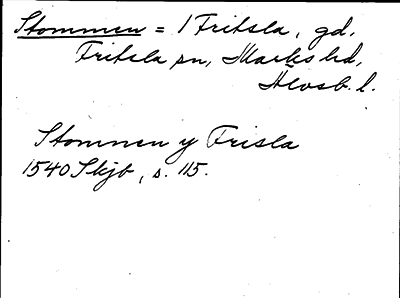 Stommen = 1 Fritsla, gd,
Fritsla sn, Marks hd,
Älvsb. l.
Stommen y Frisla
1540 Skjb, s. 115.